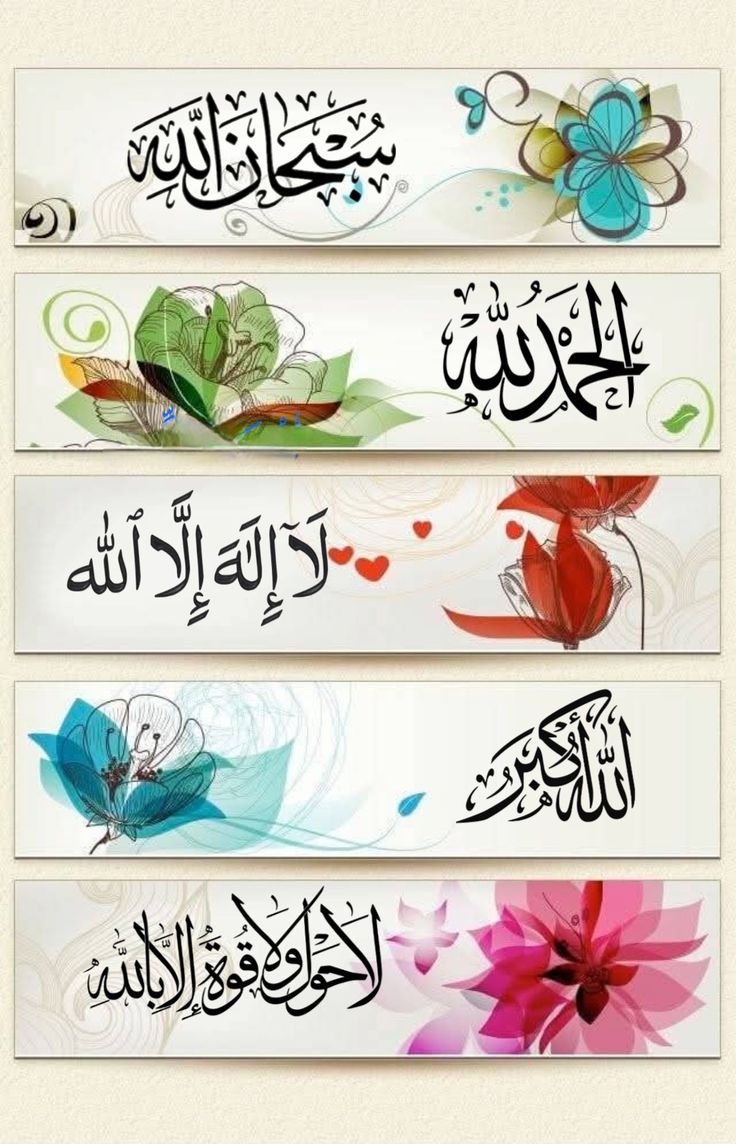 سُبْحَانَ اللّٰهِ
الْحَمْدُ لِلّٰهِ
لَآ إِلَٰهَ إِلَّا ٱللَّه
اللّٰهُ أَكْبَرُ
لَا حَوْلَ وَلَا قُوَّةَ إِلَّا بِاللّٰهِ